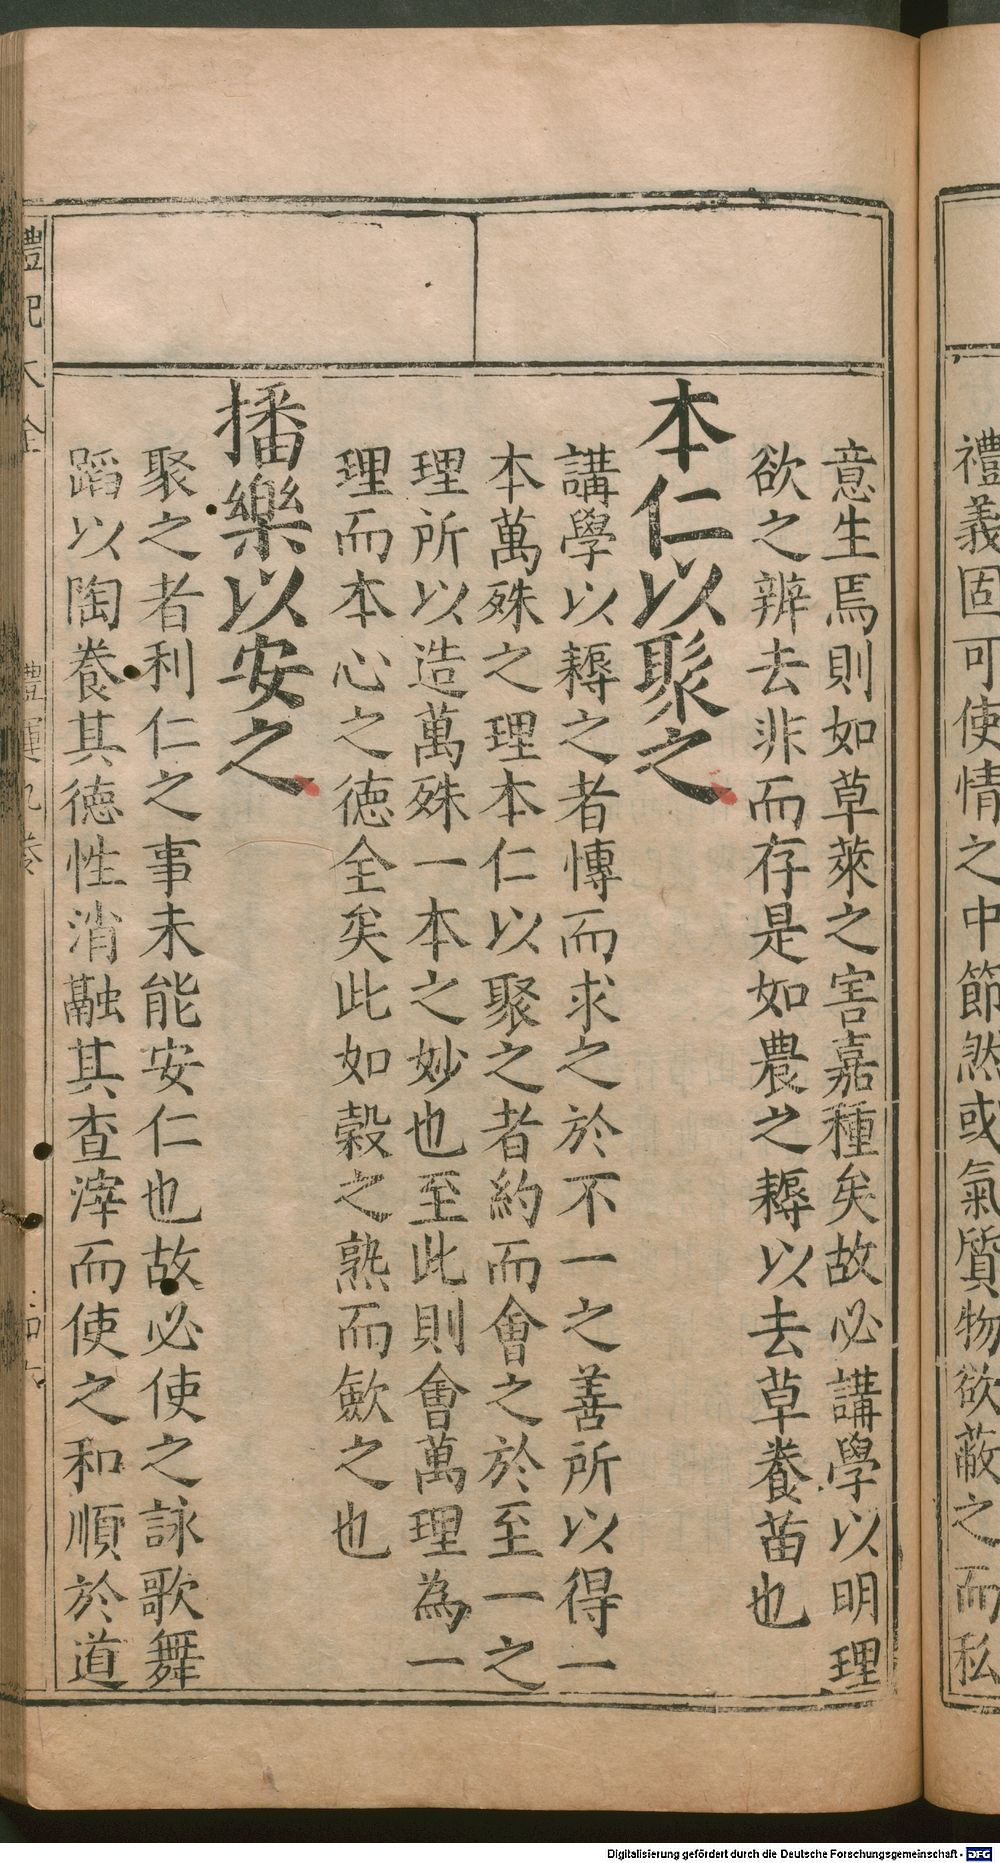 禮義固可使情之中節然或氣質物欲蔽之而私
意生焉則如草萊之害嘉種矣故必講學以明理
欲之辨去非而存是如農之耨以去草養苗也
本仁以聚之
講學以耨之者愽而求之於不一之善所以得一
本萬殊之理本仁以聚之者約而會之於至一之
理所以造萬殊一本之妙也至此則會萬理為一
理而本心之徳全矣此如榖之熟而歛之也
播樂以安之
聚之者利仁之事未能安仁也故必使之詠歌舞
蹈以陶養其徳性消融其查滓而使之和順於道
禮記大全
禮運九卷
Digitalisierung gefördert durch die Deutsche Forschungsgemeinschaft - DFG